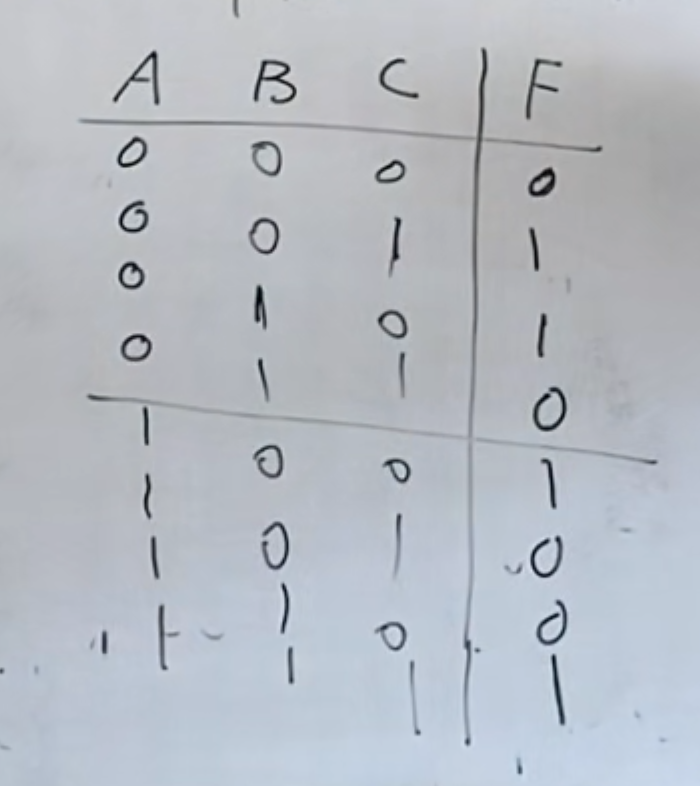 A B C F
0 0 0 0
0 0 1 1
0 1 0 1
0 1 1 0
1 0 0 1
1 0 1 0
1 1 0 0
1 1 1 1